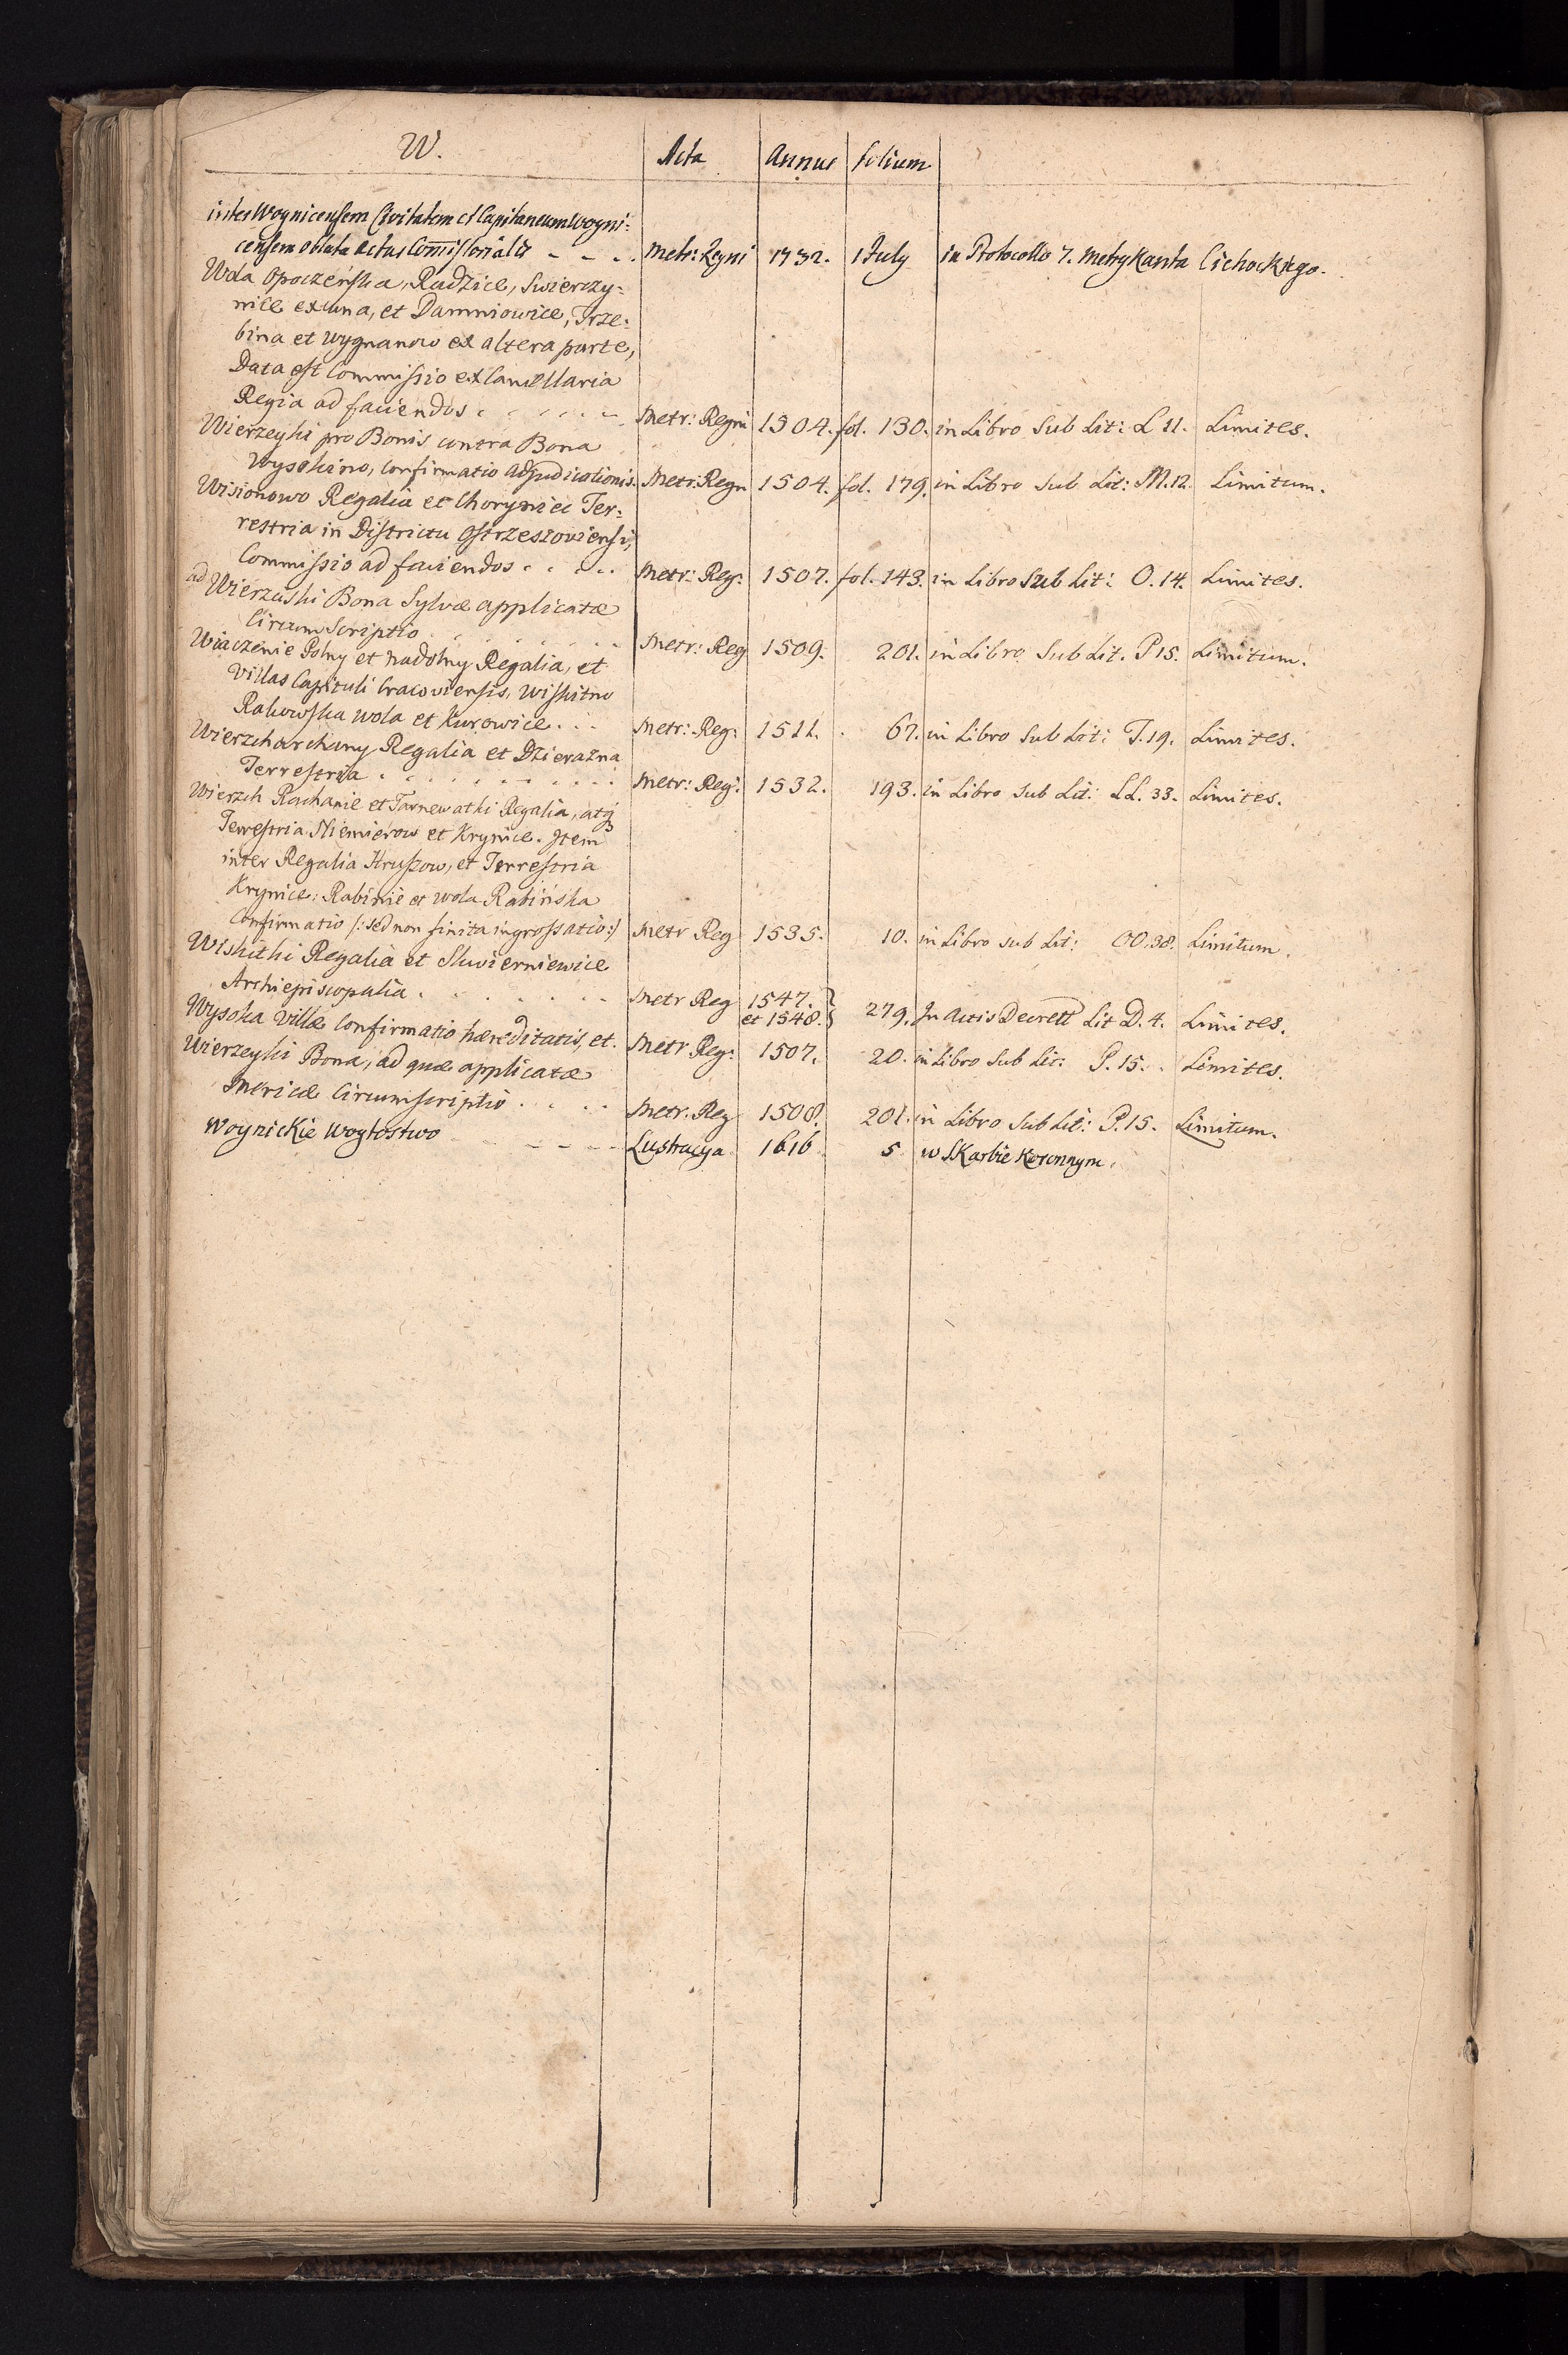 W. Acta Annus folium
inter Woynicensem Civitatem et Capitaneum Woyni:
censem oblata actus Com̄issorialis - - - . Metr: Regni 1732. 1 July in Protocollo 7. Metrykanta Cichockiego.
Wola Opoczenska, Radzice, Swierczy:
nice ex una, et Damniowice, Trze:
bina et Wygnanow ex altera parte,
Data est Commissio ex Cancellaria
Regia ad faciendos . . . . . . Metr: Regni 1504. fol. 130. in Libro Sub Lit: L 11. Limites.
Wierzeyki pro Bonis contra Bona
Wysokino, confirmatio adjudicationis. Metr: Regn 1504. fol. 179. in Libro Sub Lit: M.12. Limitum.
Wisionowo Regalia et Choryniec Ter:
restria in Districtu Ostrzeszoviensi,
Commissio ad faciendos . . . . . Metr: Reg: 1507. fol. 143. in Libro Sub Lit: O.14. Limites.
ad Wierzuski Bona Sylvæ applicatæ
Circumscriptio . . . . . . . Metr: Reg 1509. 201. in Libro Sub Lit. P 15. Limitum.
Wiaczenie Polny et nadolny Regalia, et
Villas Capituli Cracoviensis, Wiskitno
Rakowska Wola et Kurowice . . . Metr: Reg: 1511. 67. in Libro Sub Lit: T.19. Limites.
Wierzchorchany Regalia et Dzierazna
Terrestria . . . . . . . . . Metr: Reg: 1532. 193. in Libro Sub Lit: LL. 33. Limites.
Wierzch Rachanie et Tarnewatki Regalia, atq
Terrestria Niemierow et Krynice. Item
inter Regalia Hruszow, et Terrestria
Krynice: Rabinie et Wola Rabińska
Confirmatio /: sed non finita ingrossatio :/ Metr Reg 1535. 10. in Libro Sub Lit: OO.38. Limitum.
Wiskithi Regalia et Skwierniewice
Archiepiscopalia . . . . . . . Metr Reg 1547. et 1548. 279. In Actis Decrett Lit D. 4. Limites.
Wysoka Villæ Confirmatio hæreditatis, et. Metr Reg: 1507. 20. in Libro Sub Lit: P.15. . Limites.
Wierzeyki Bona, ad quæ applicatæ
Mericæ Circumscriptio . . . . Metr. Reg 1508. 201. in Libro Sub Lit: P.15. Limitum.
Woynickie Woytostwo - - - - - Lustracya 1616 5 w Skarbie Koronnym.